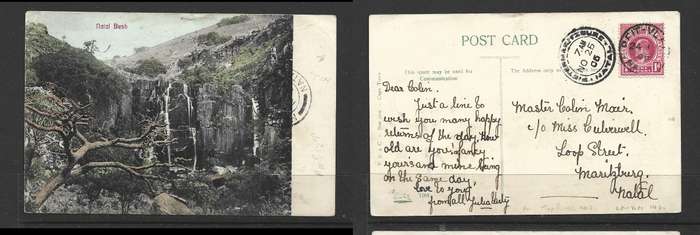 Natal Bush
POST CARD
This space may be used for
Communication
The Address only
Dear Colin.
Just a line to
wish you many happy
returns of the day, How
old are you, fancy
yours and mine being
on the same day,
love to you
from all
Master Colin Moir,
c/o Miss Culverwell.
Loop Street.
Maritzburg.
Natal
PIETERMARITZBURG NATAL
7 AM
NO 25
06